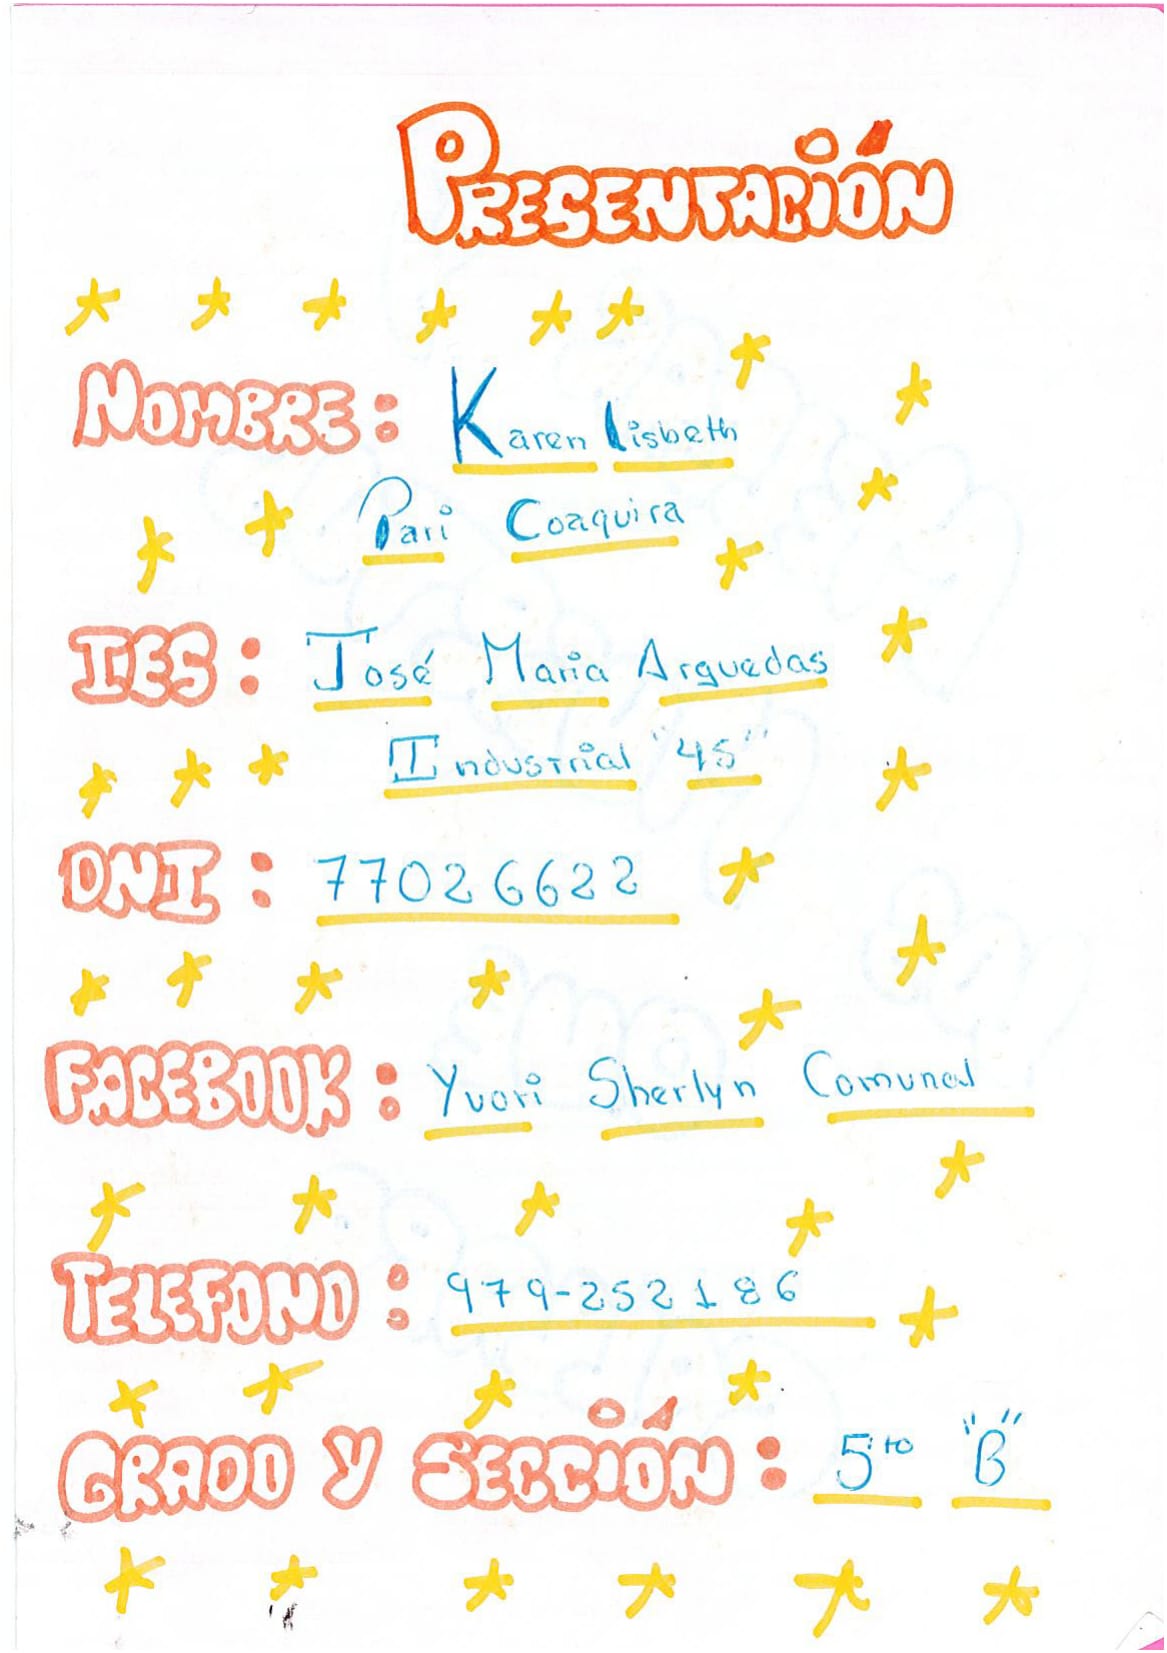 PRESENTACIÓN
NOMBRE: Karen Lisbeth
Pari Coaquira
IES: José Maria Arguedas
Industrial "45"
DNI: 77026622
FACEBOOK: Yuori Sherlyn Comunal
TELEFONO: 979-252186
GRADO Y SECCIÓN: 5to "B"